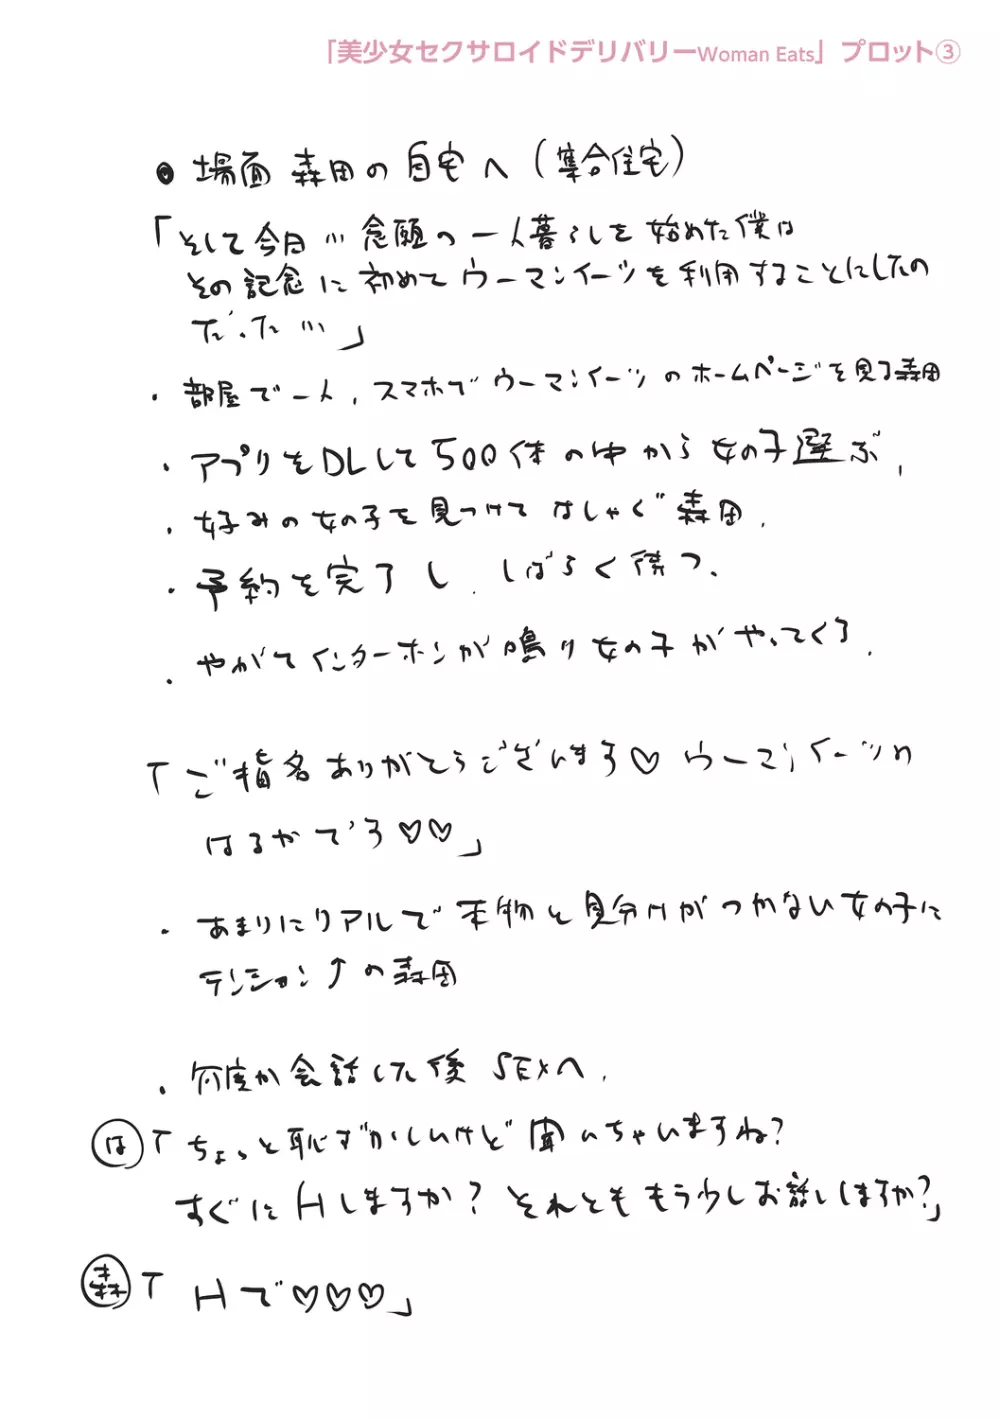 「美少女セクサロイドデリバリーWoman Eats」プロット③
● 場面 森田の自宅へ(集合住宅)
「そして今日… 念願の一人暮らしを始めた僕は
その記念に初めてウーマンイーツを利用することにしたの
だった…」
・部屋で一人、スマホでウーマンイーツのホームページを見る森田
・アプリをDLして500体の中から女の子選ぶ、
・好みの女の子を見つけてはしゃぐ森田、
・予約を完了し、しばらく待つ、
・やがてインターホンが鳴り女の子がやってくる、
「ご指名ありがとうございます♡ウーマンイーツの
はるかで〜す♡♡」
・あまりにリアルで本物と見分けがつかない女の子に
テンション↑の森田
・何度か会話した後SEXへ、
は「ちょっと恥ずかしいけど聞いちゃいますね?
すぐにHしますか?それとももう少しお話しますか?」
森「Hで♡♡♡」